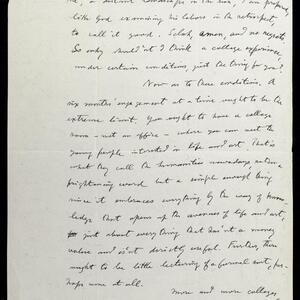 me, a distant landscape in the sun, I am prepared,
like God examining his labors in the retrospect,
to call it good. Selah, amen, and no regrets.
So why shouldn't I think a college experience,
under certain conditions, just the thing for you?
Now as to those conditions. A
six months' engagement at a time ought to be the
extreme limit. You ought to have a college
room - not an office - where you can meet the
young people interested in life and art. That is
what they call the humanities nowadays, rather a
frightening word but a simple enough thing
since it embraces everything by the way of know-
ledge that opens up the avenues of life and art,
just about everything that hasn't a money
value and isn't directly useful. Further, there
ought to be little lecturing of a formal sort, per-
haps none at all.
More and more colleges,